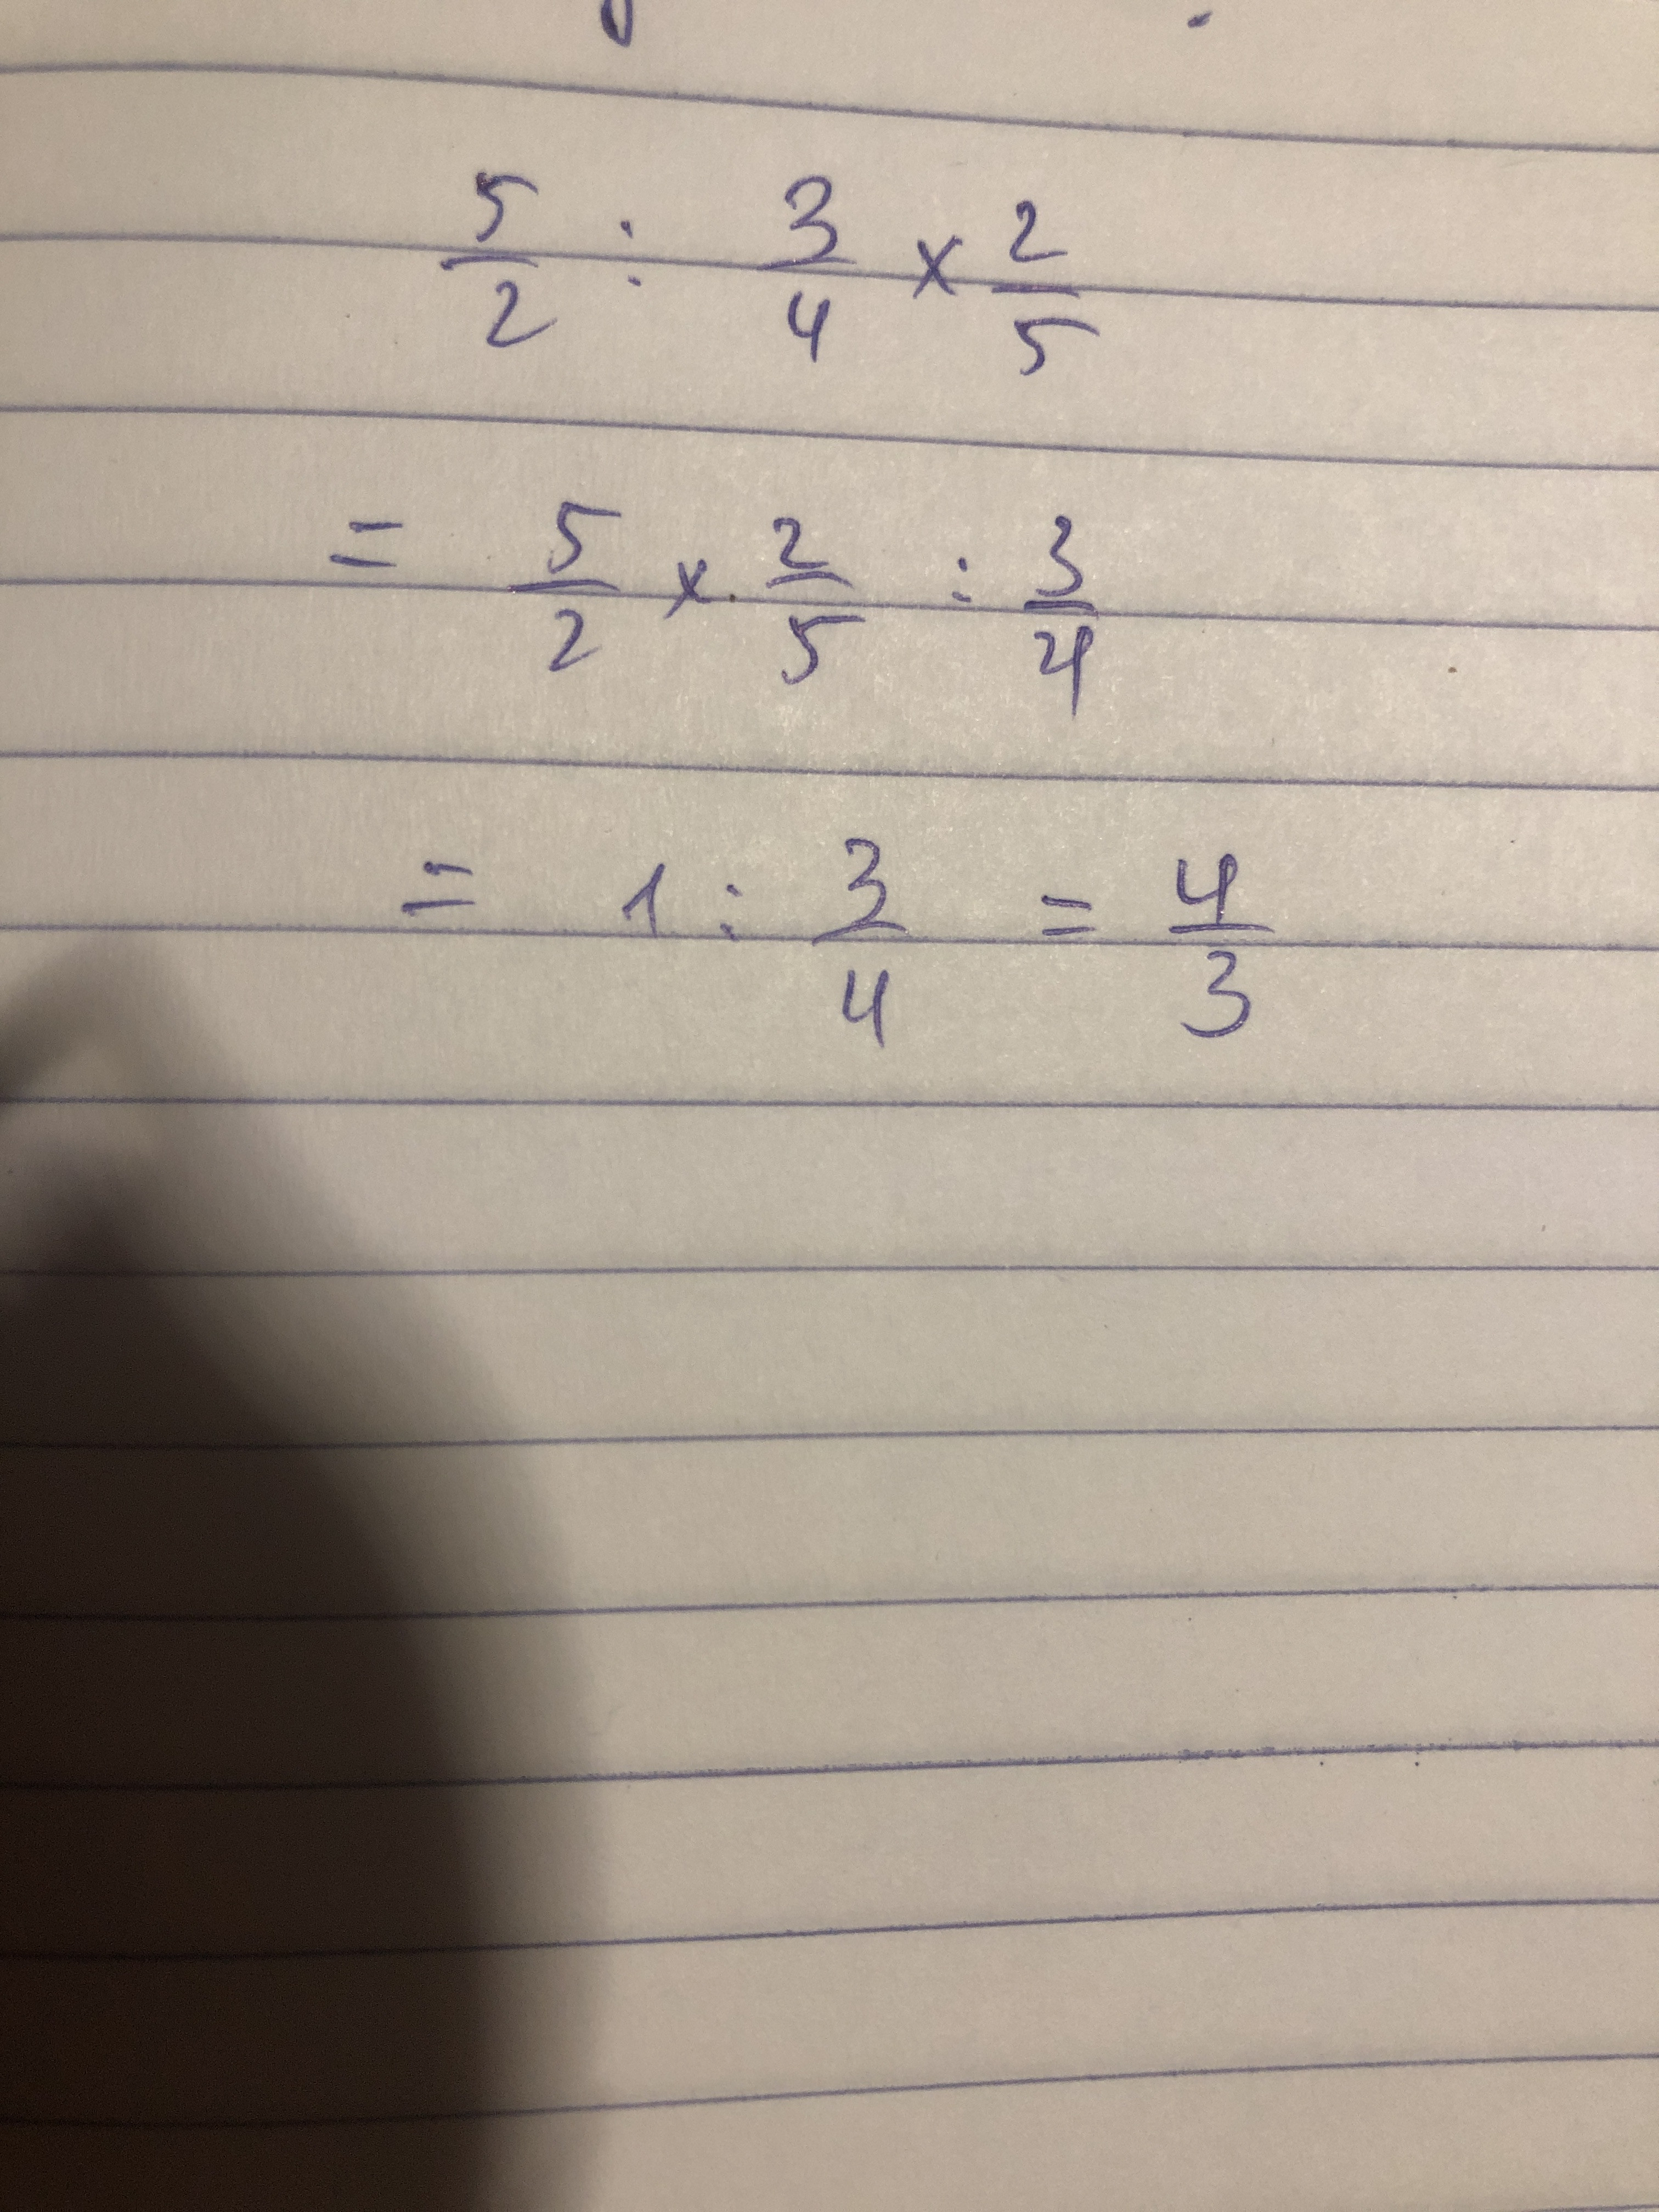 5/2 : 3/4 × 2/5
= 5/2 × 2/5 : 3/4
= 1 : 3/4 = 4/3